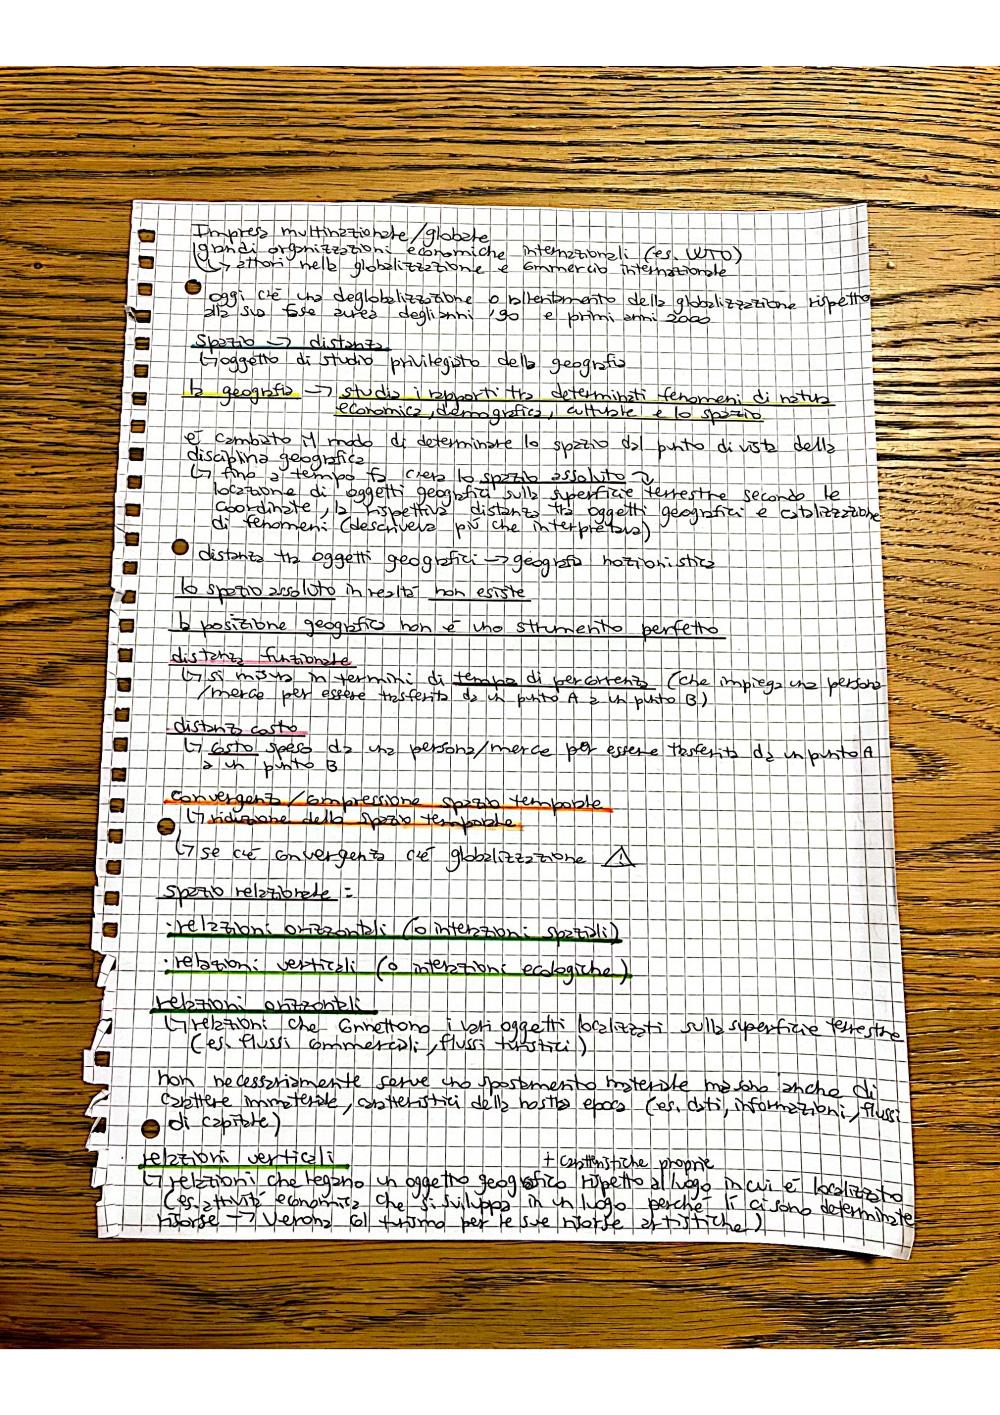 Impresa multinazionale/globale
grandi organizzazioni economiche internazionali (es. WTO)
↳ attori nella globalizzazione e commercio internazionale
oggi c'è una deglobalizzazione o rallentamento della globalizzazione rispetto
alla sua fase aurea degli anni '90 e primi anni 2000
Spazio → distanza
↳ oggetto di studio privilegiato della geografia
la geografia → studia i rapporti tra determinati fenomeni di natura
economica, demografica, culturale e lo spazio
è cambiato il modo di determinare lo spazio dal punto di vista della
disciplina geografica
↳ fino a tempo fa c'era lo spazio assoluto ↴
locazione di oggetti geografici sulla superficie terrestre secondo le
coordinate, la rispettiva distanza tra oggetti geografici e catalizzazione
di fenomeni (descriveva più che interpretava)
distanza tra oggetti geografici → geografia nozionistica
lo spazio assoluto in realtà non esiste
la posizione geografica non è uno strumento perfetto
distanza funzionale
↳ si misura in termini di tempo di percorrenza (che impiega una persona
/merce per essere trasferita da un punto A a un punto B)
distanza costo
↳ costo speso da una persona/merce per essere trasferita da un punto A
a un punto B
convergenza/compressione spazio temporale
↳ riduzione dello spazio temporale
↳ se c'è convergenza c'è globalizzazione ⚠
spazio relazionale =
· relazioni orizzontali (o interazioni spaziali)
· relazioni verticali (o interazioni ecologiche)
relazioni orizzontali
↳ relazioni che connettono i vari oggetti localizzati sulla superficie terrestre
(es. flussi commerciali, flussi turistici)
non necessariamente serve uno spostamento materiale ma sono anche di
carattere immateriale, caratteristici della nostra epoca (es. dati, informazioni, flussi
di capitale)
relazioni verticali
+ caratteristiche proprie
↳ relazioni che legano un oggetto geografico rispetto al luogo in cui è localizzato
(es. attività economica che si sviluppa in un luogo perché lì ci sono determinate
risorse → Verona col turismo per le sue risorse artistiche)